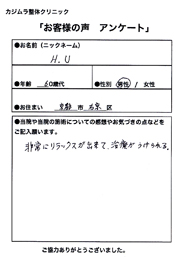 カジムラ整体クリニック
「お客様の声　アンケート」
●お名前（ニックネーム）
H.U
●年齢　60歳代
●性別　男性 / 女性
●お住まい　京都 市 右京 区
●当院や当院の施術についての感想やお気づきの点などを
ご記入願います。
非常にリラックスが出来て、治療がうけられる。
ご協力ありがとうございました。